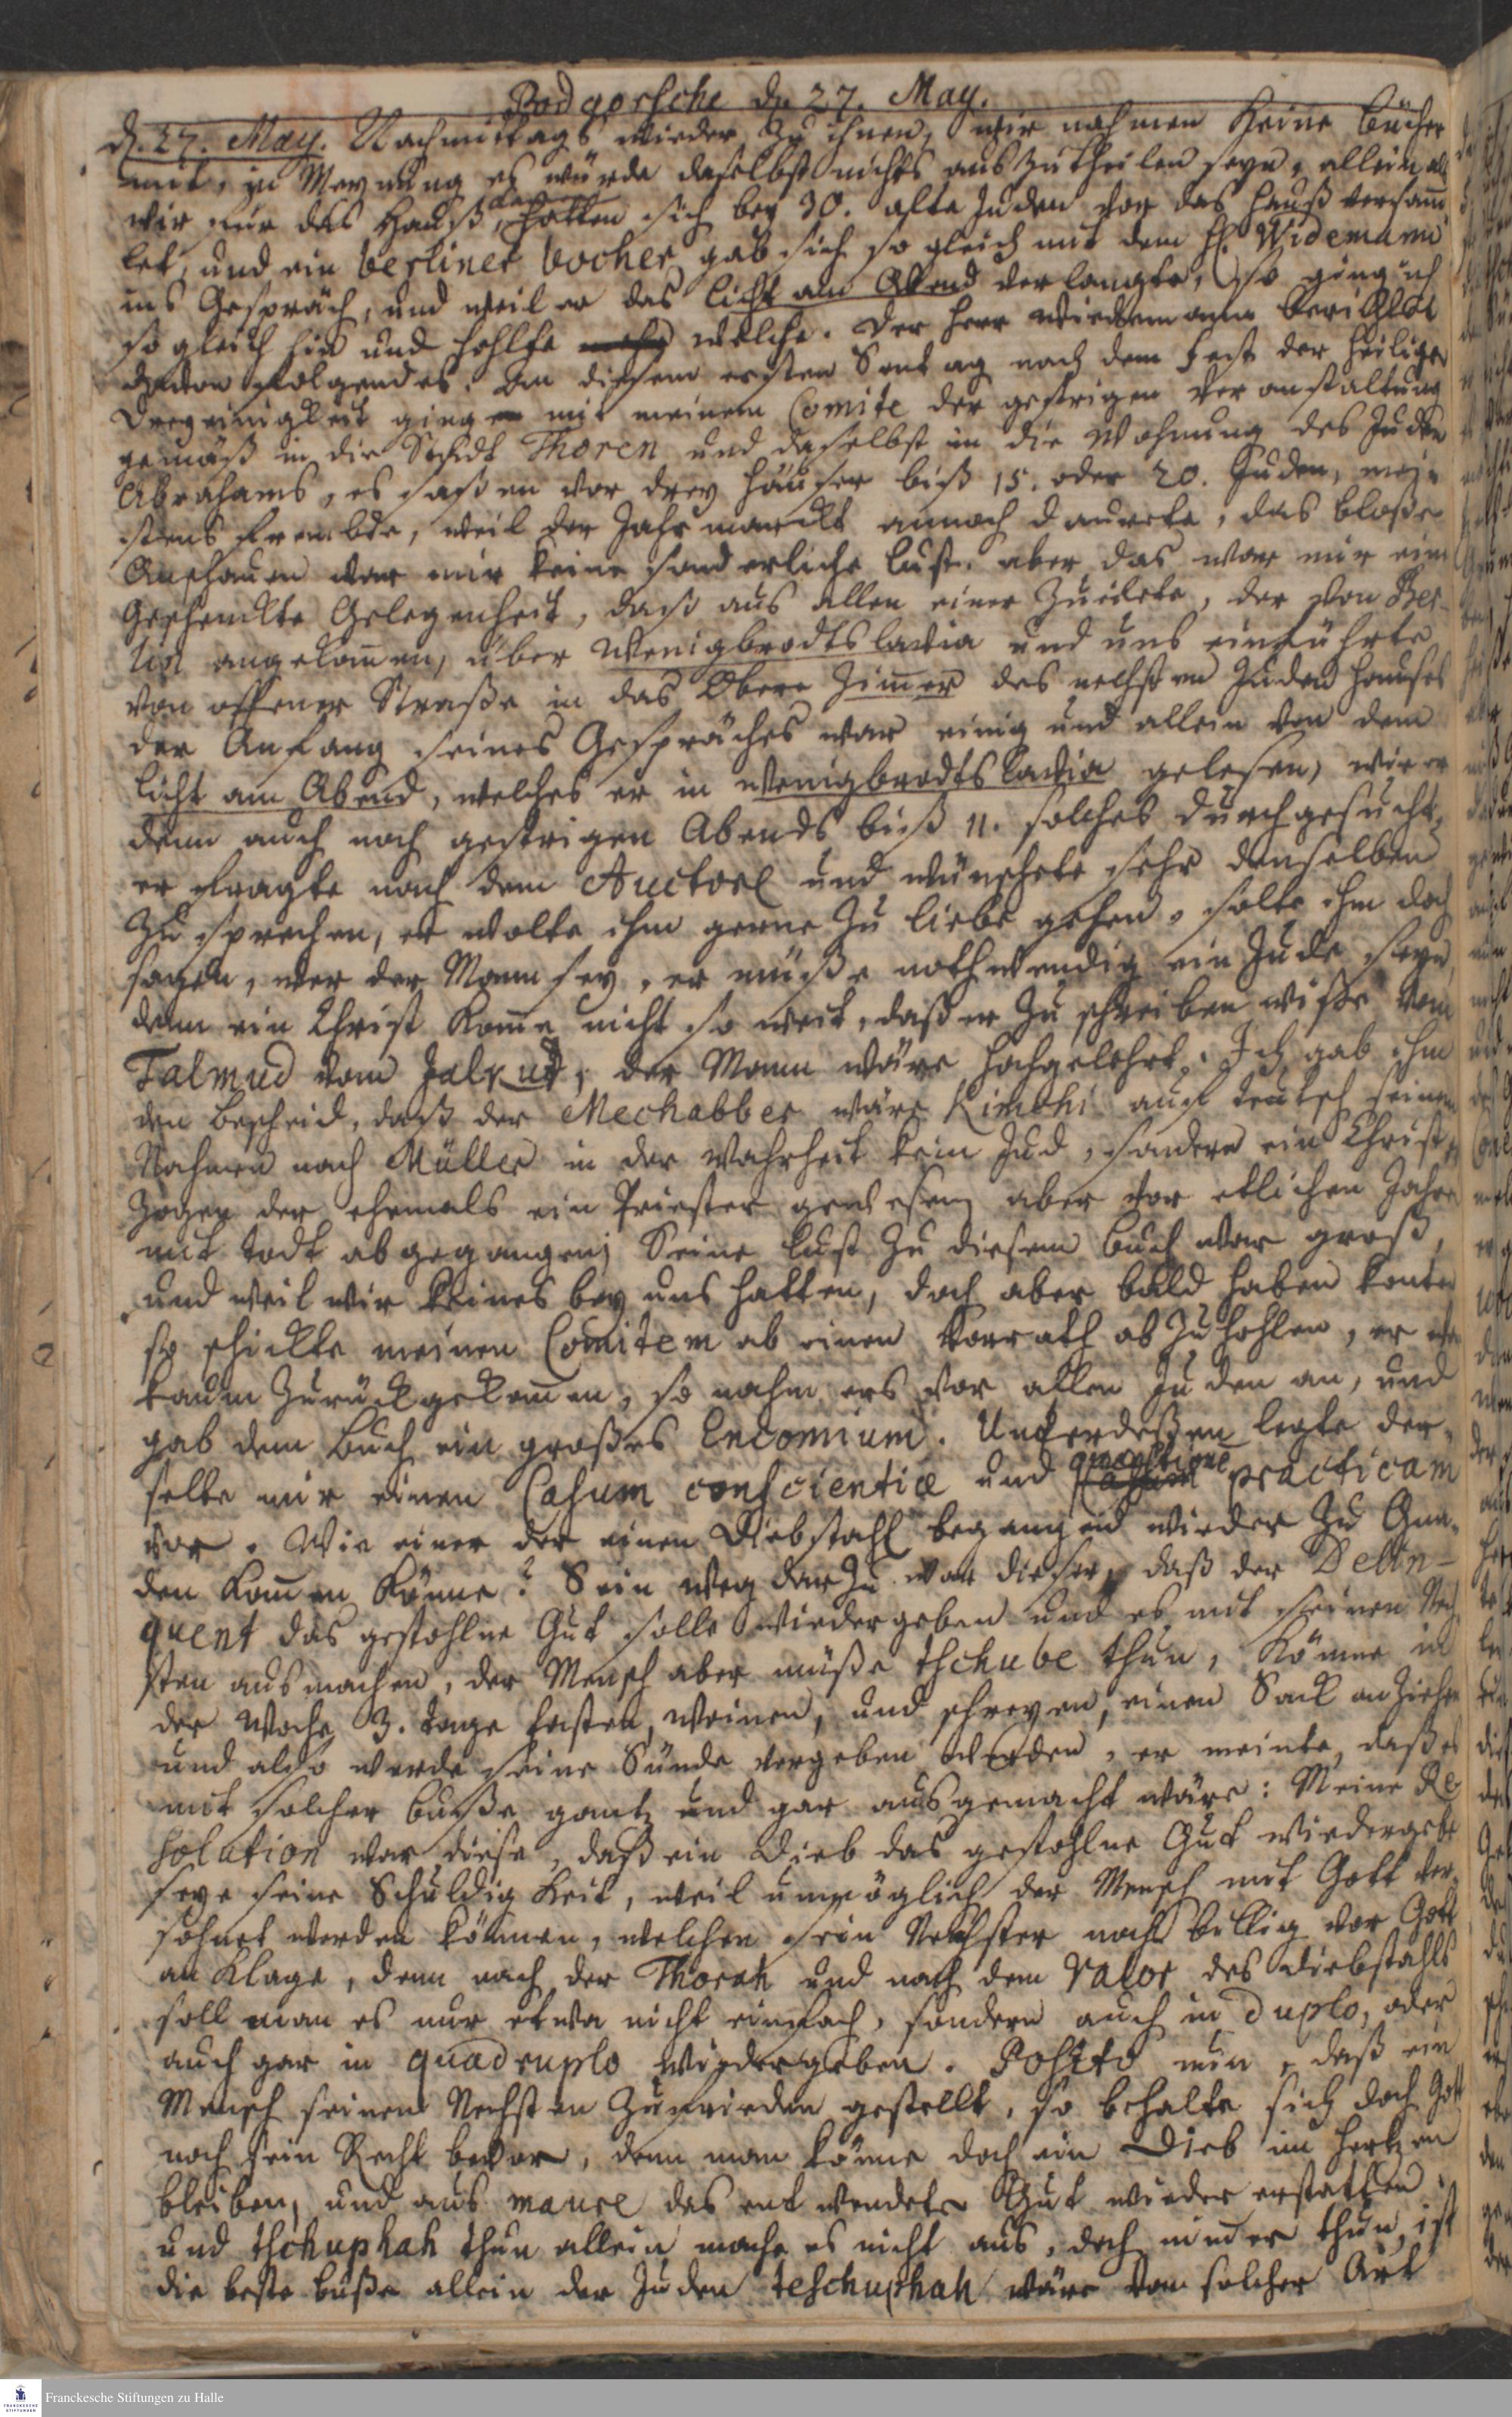 Podgorsche d. 27. May.
d. 27. May. Nachmittags wieder zu ihnen, wir nahmen keine bücher
mit, in Meynung es würde daselbst nichts auszutheilen seyn, allein als
wir nur das Hauß, hatten sich bey 30. alte Juden vor das Hauß versam̅
let, und ein berliner bocher gab sich so gleich mit dem H. Widemann
ins Gespräch, und weil er das licht am Abend verlangte, so ging ich
so gleich hin und hohlte welche. Der Herr Wiedemann berichtet
davon folgendes. An diesem ersten Sontag nach dem Fest der heiligen
Dreyeinigkeit ging mit meinem Comite der gestrigen Veranstaltung
gemäß in die Stadt Thoren und daselbst in die Wohnung des Juden
Abrahams, es saßen vor drey Häuser biß 15. oder 20. Juden, mei-
stens frembde, weil der Jahrmarckt annoch daurete, das bloße
Anschauen war mir keine sonderliche lust, aber das war mir eine
Geschenckte Gelegenheit, daß aus allen einer zueilete, der von Ber-
lin angekom̅en, über Wenigbrodtslavia und uns einführte
von offener Straße in das Obere Zim̅er des nechsten Juden Hauses
der Anfang seines Gespräches war einig und allein von dem
licht am Abend, welches er in Wenigbrodtslavia gelesen, wie er
denn auch noch gestrigen Abends biß 11. solches durchgesucht,
er fragte nach dem Auctore und wünschete sehr denselben
zu sprechen, er wolte ihm gerne zu liebe gehen, solte ihm doch
sagen, wer der Mann sey, er müße nothwendig ein Jude seyn,
denn ein Christ kom̅e nicht so weit, daß er zu schreiben wiße vom
Talmud vom Jalkut, der Mann wäre hochgelehrt. Ich gab ihm
den bescheid, daß der Mechabber wäre Kimchi auch teutsch seinen
Nahmen nach Müller in der Wahrheit kein Jud, sondern ein Christ,
der ehemals ein Priester gewesen, aber vor etlichen Jahren
mit todt abgegangen; Seine lust zu diesem buch war groß,
und weil wir keines bey uns hatten, doch aber bald haben konten
so schickte meinen Comitem ab einen Vorrath abzuhohlen, er war
kaum zurückgekom̅en, so nahm ers vor allen Juden an, und
gab dem buch ein großes Encomium. Unterdeßen legte der-
selbe mir einen Casum conscientiæ und quæstione̅ practicam
vor. Wie einer der einen Diebstahl begangen wieder zu Gna-
den kom̅en könne? Sein weg darzu war dieser, daß der Delin-
quent das gestohlne Gut solle wiedergeben und es mit seinen Nech
sten ausmachen, der Mensch aber müße tschube thun, könne in
der Woche 3. tage fasten, weinen, und schreyen, einen Sack anziehen
und also werde seine Sünde vergeben werden, er meinte, daß es
mit solcher buße gantz und gar ausgemacht wäre: Meine Re
solution war diese, daß ein Dieb das gestohlne Gut wiedergebe
seye seine Schuldigkeit, weil unmöglich der Mensch mit Gott ver-
söhnet werden können, welchen sein Nechster noch billig vor Gott
anklage, denn nach der Thorah und nach dem Valor des diebstahls
soll man es nur etwa nicht einfach, sondern auch in duplo, oder
auch gar in quadruplo wiedergeben. Posito nun, daß ein
Mensch seinen Nechsten zufrieden gestellt, so behalte sich doch Gott
noch sein Recht bevor, denn man könne doch ein Dieb im Hertzen
bleiben, und aus das entwendete Gut wieder erstatten.
und tschuphah thun allein mache es nicht aus, doch thun, ist
die beste buße allein der Juden teschuphah wäre von solcher Art
Franckesche Stiftungen zu Halle